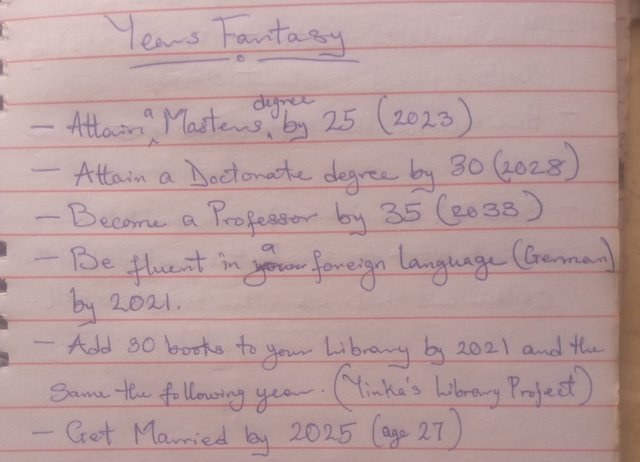 Years Fantasy
- Attain a Masters degree by 25 (2023)
- Attain a Doctorate degree by 30 (2028)
- Become a Professor by 35 (2033)
- Be fluent in a foreign language (German)
by 2021.
- Add 30 books to your Library by 2021 and the
same the following year. (Yinka's Library Project)
- Get Married by 2025 (age 27)